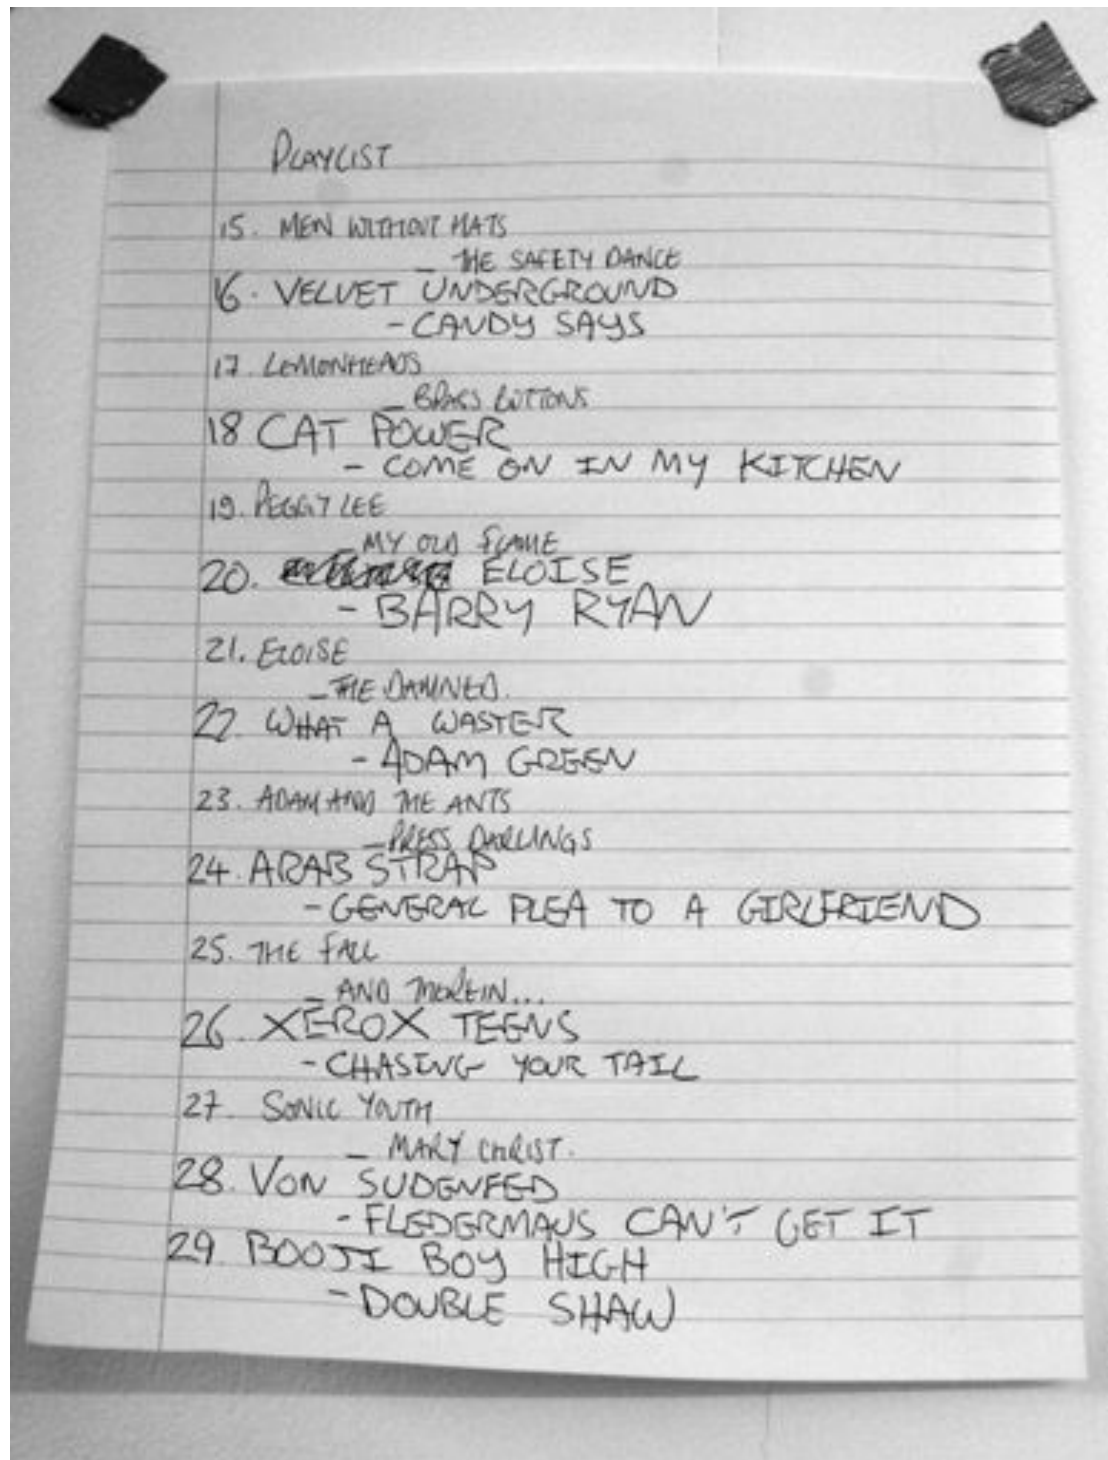 PLAYLIST
15. MEN WITHOUT HATS
- THE SAFETY DANCE
16. VELVET UNDERGROUND
- CANDY SAYS
17. LEMONHEADS
- BRASS BUTTONS
18 CAT POWER
- COME ON IN MY KITCHEN
19. PEGGY LEE
- MY OLD FLAME
20. ELOISE
- BARRY RYAN
21. ELOISE
- THE DAMNED.
22. WHAT A WASTER
- ADAM GREEN
23. ADAM AND THE ANTS
- PRESS DARLINGS
24. ARAB STRAP
- GENERAL PLEA TO A GIRLFRIEND
25. THE FALL
- AND THEREIN...
26. XEROX TEENS
- CHASING YOUR TAIL
27. SONIC YOUTH
- MARY CHRIST.
28. VON SUDENFED
- FLEDERMAUS CAN'T GET IT
29. BOOJI BOY HIGH
- DOUBLE SHAW